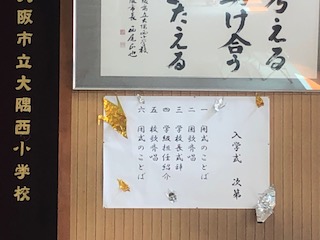 考える
け合う
たえる
入学式 次第
一 開式のことば
二 国歌斉唱
三 学校長式辞
四 学級担任紹介
五 校歌斉唱
六 閉式のことば
阪市立大隅西小学校